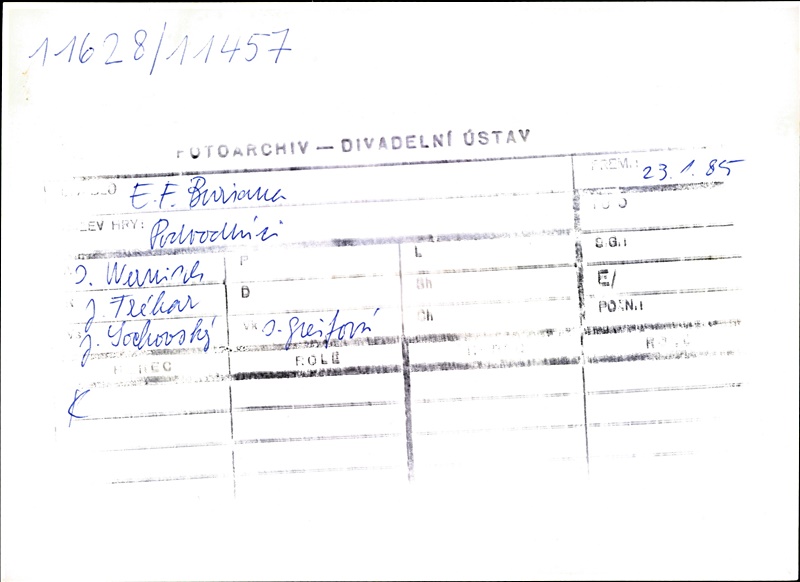 11628/11457
FOTOARCHIV — DIVADELNÍ ÚSTAV
E. F. Buriana
PREM.: 23. 1. 85
EV HRY: Podvodníci
S.G.:
J. Wernisch P L
E/
J. Tréhar D Gh
POZN.:
J. Sochovský O. Greifová Ch
ROLE
K